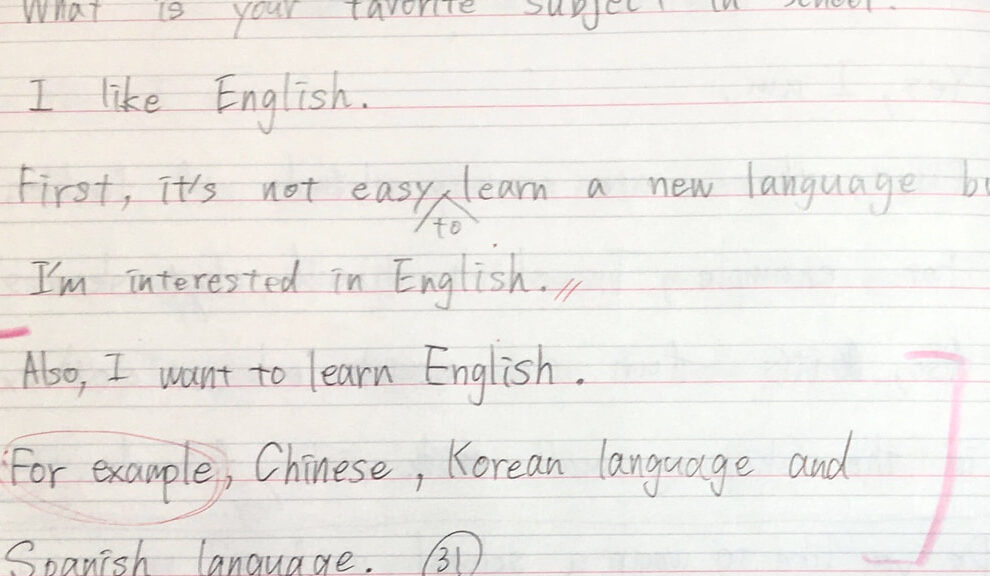 What is your favorite subject in school.
I like English.
First, it's not easy to learn a new language
I'm interested in English.
Also, I want to learn English.
For example, Chinese, Korean language and
Spanish language. 31